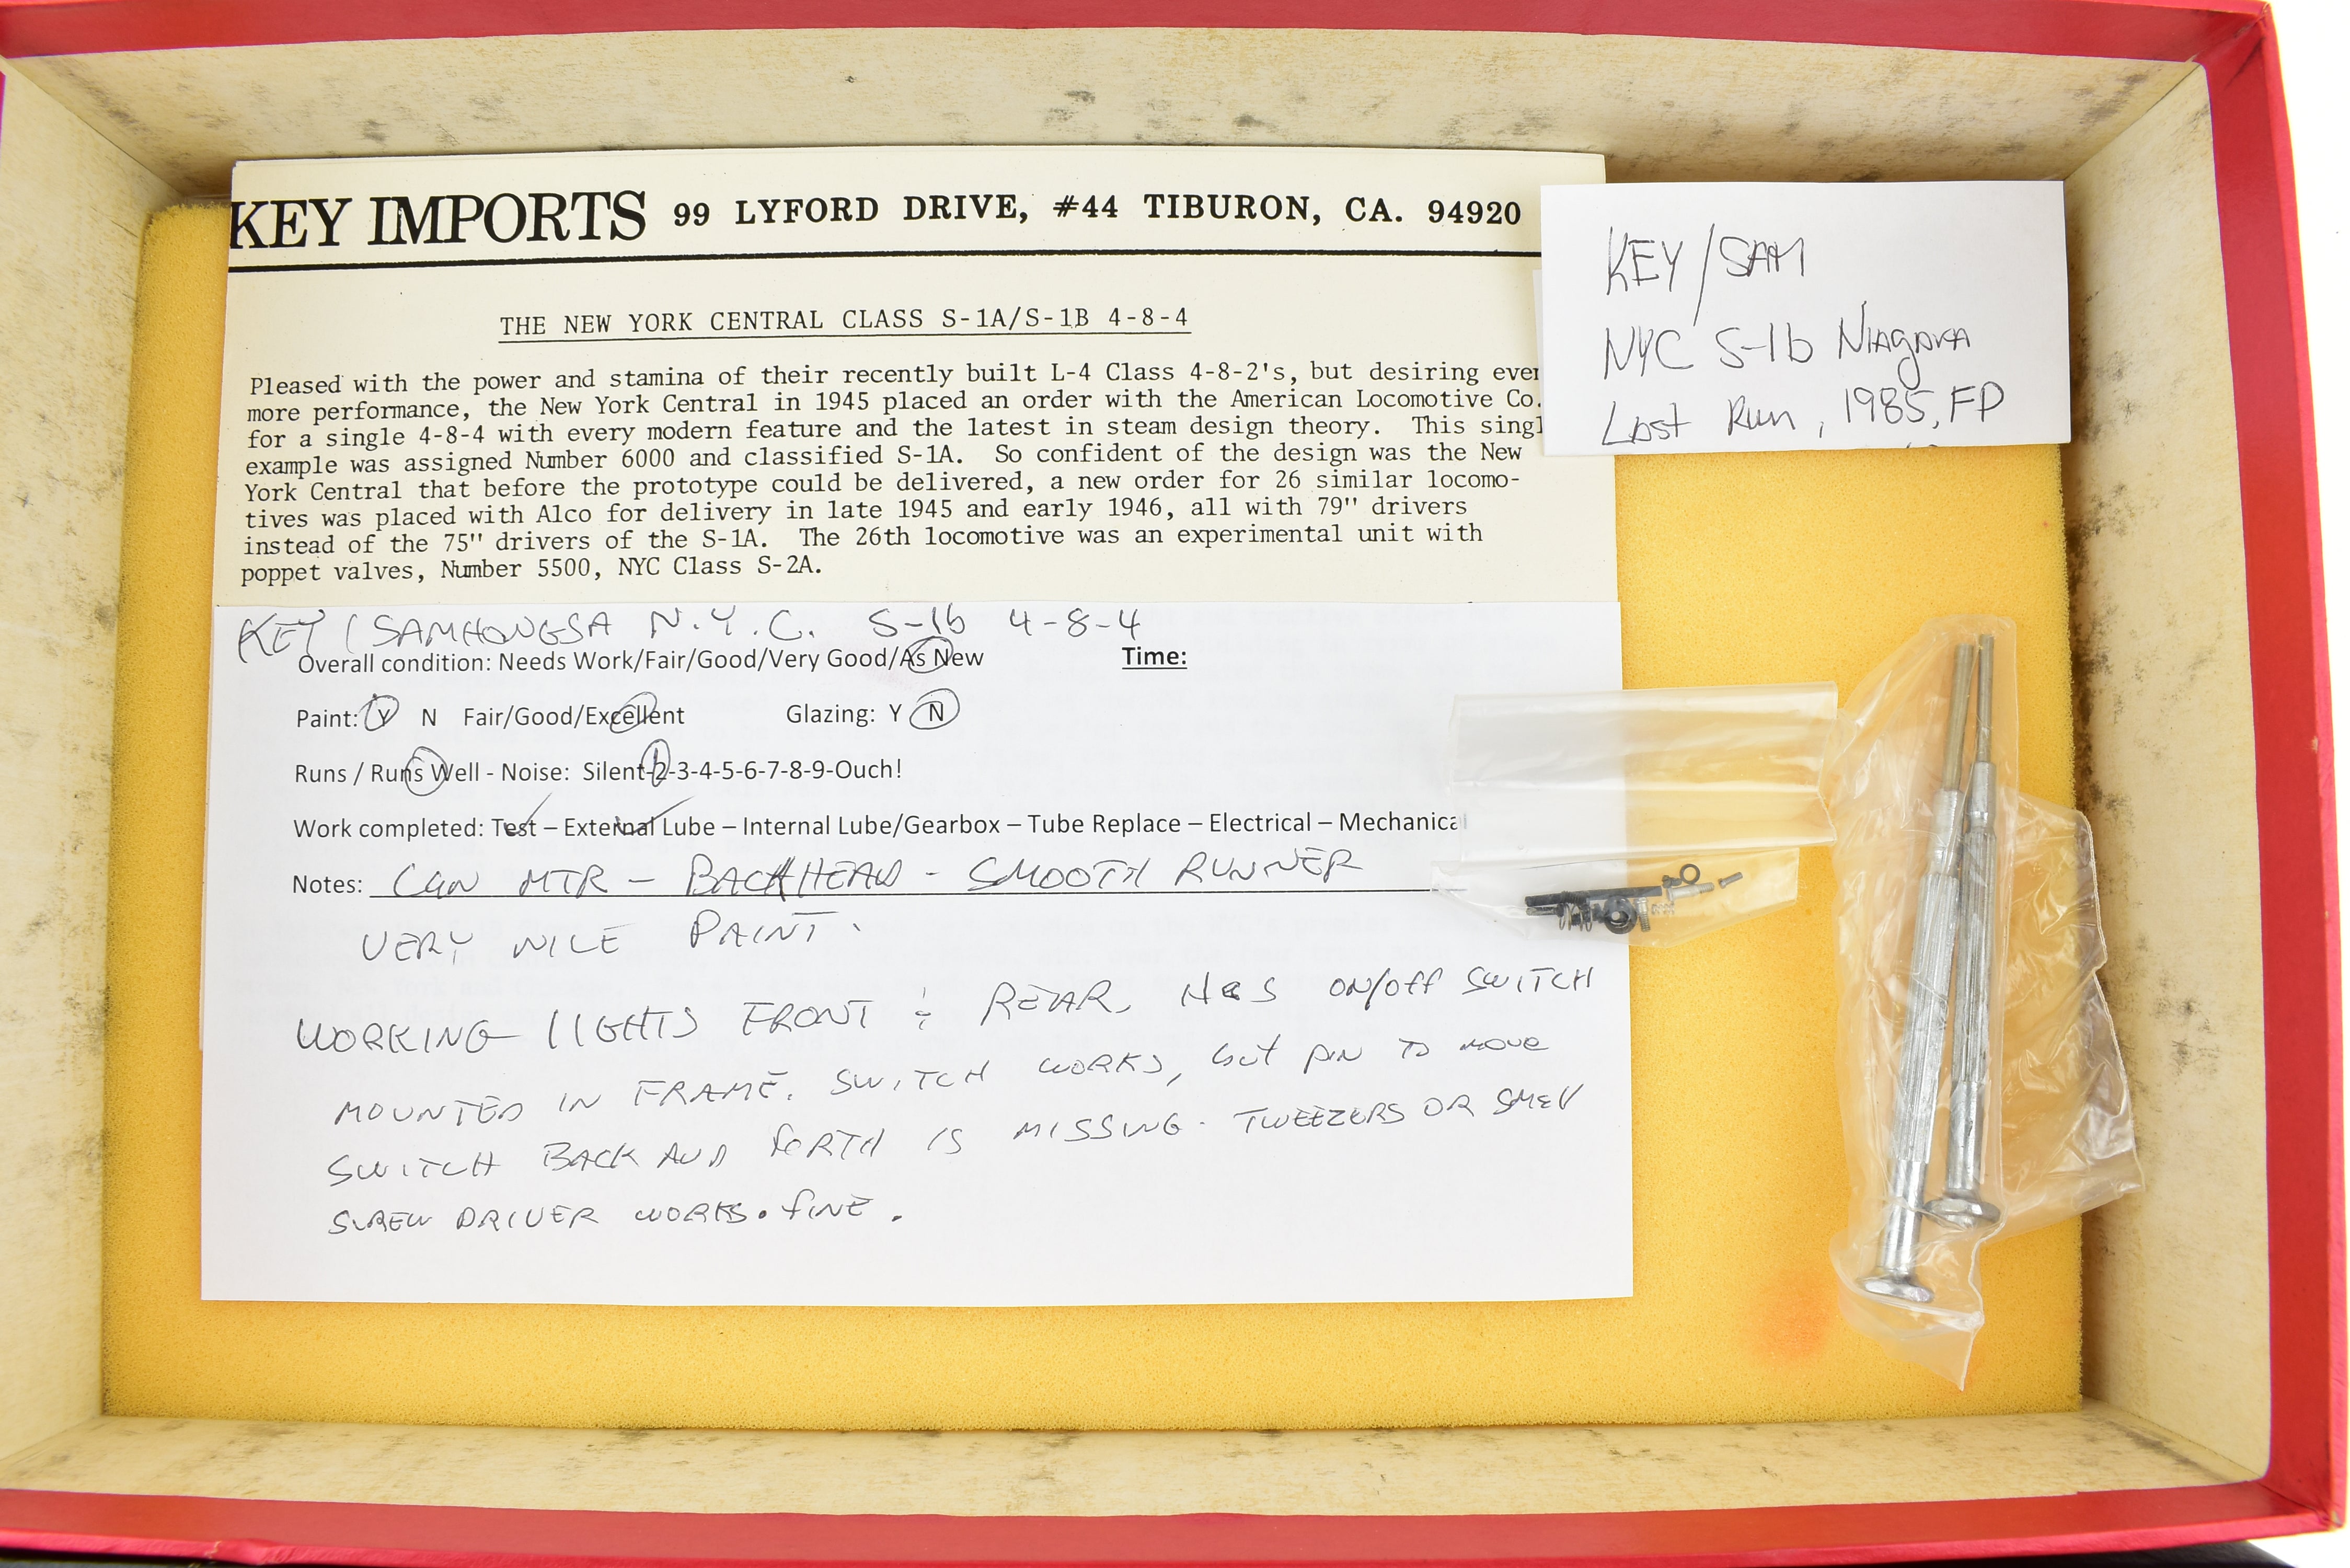 KEY IMPORTS 99 LYFORD DRIVE, #44 TIBURON, CA. 94920
THE NEW YORK CENTRAL CLASS S-1A/S-1B 4-8-4
Pleased with the power and stamina of their recently built L-4 Class 4-8-2's, but desiring
more performance, the New York Central in 1945 placed an order with the American Locomotive Co.
for a single 4-8-4 with every modern feature and the latest in steam design theory. This
example was assigned Number 6000 and classified S-1A. So confident of the design was the New
York Central that before the prototype could be delivered, a new order for 26 similar locomo-
tives was placed with Alco for delivery in late 1945 and early 1946, all with 79" drivers
instead of the 75" drivers of the S-1A. The 26th locomotive was an experimental unit with
poppet valves, Number 5500, NYC Class S-2A.
KEY/SAM
NYC S-1b Niagara
Last Run, 1985, FP
KEY/SAMHONGSA N.Y.C. S-1b 4-8-4
Overall condition: Needs Work/Fair/Good/Very Good/As New Time:
Paint: Y N Fair/Good/Excellent Glazing: Y N
Runs / Runs Well - Noise: Silent-2-3-4-5-6-7-8-9-Ouch!
Work completed: Test – External Lube – Internal Lube/Gearbox – Tube Replace – Electrical – Mechanical
Notes: CAN MTR - BACKHEAD - SMOOTH RUNNER
VERY NICE PAINT.
WORKING LIGHTS FRONT & REAR, HAS ON/Off SWITCH
MOUNTED IN FRAME. SWITCH WORKS, but PIN TO MOVE
SWITCH BACK AND FORTH IS MISSING. TWEEZERS OR SMALL
SCREW DRIVER WORKS. FINE.